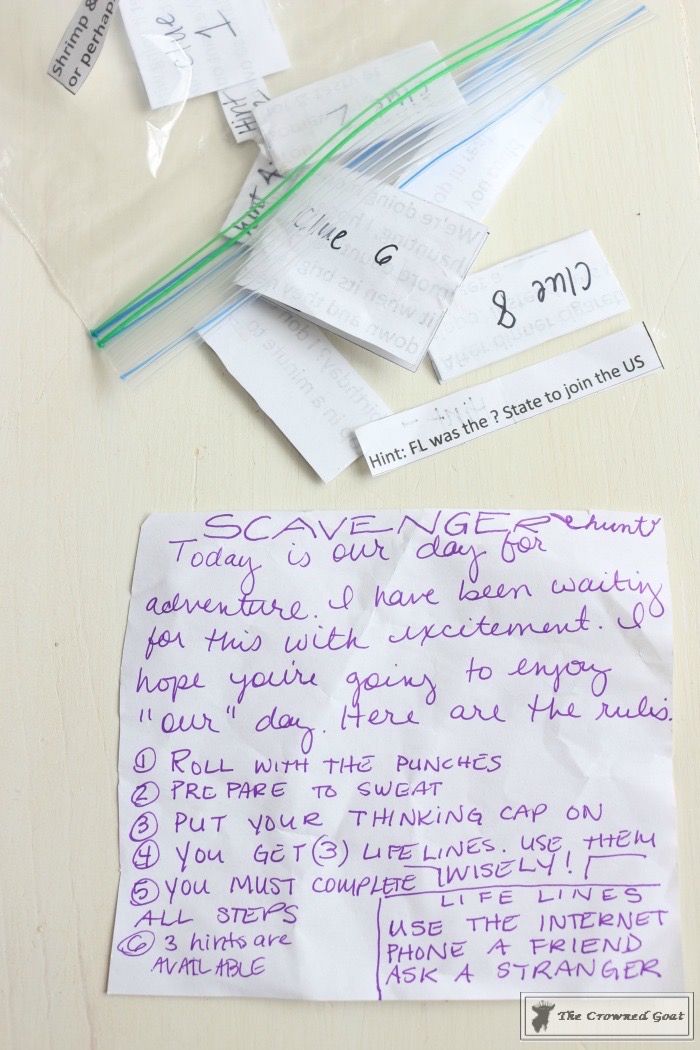 Shrimp &
or perhap
Clue
1
Hint
2
Hint 4
Clue 6
Clue 8
Hint: FL was the ? State to join the US
SCAVENGER hunt
Today is our day for
adventure. I have been waiting
for this with excitement. I
hope you're going to enjoy
"our" day. Here are the rules.
① ROLL WITH THE PUNCHES
② PREPARE TO SWEAT
③ PUT YOUR THINKING CAP ON
④ YOU GET (3) LIFE LINES. USE THEM
WISELY!
⑤ YOU MUST COMPLETE
ALL STEPS
⑥ 3 hints are
AVAILABLE
LIFE LINES
USE THE INTERNET
PHONE A FRIEND
ASK A STRANGER
The Crowned Goat